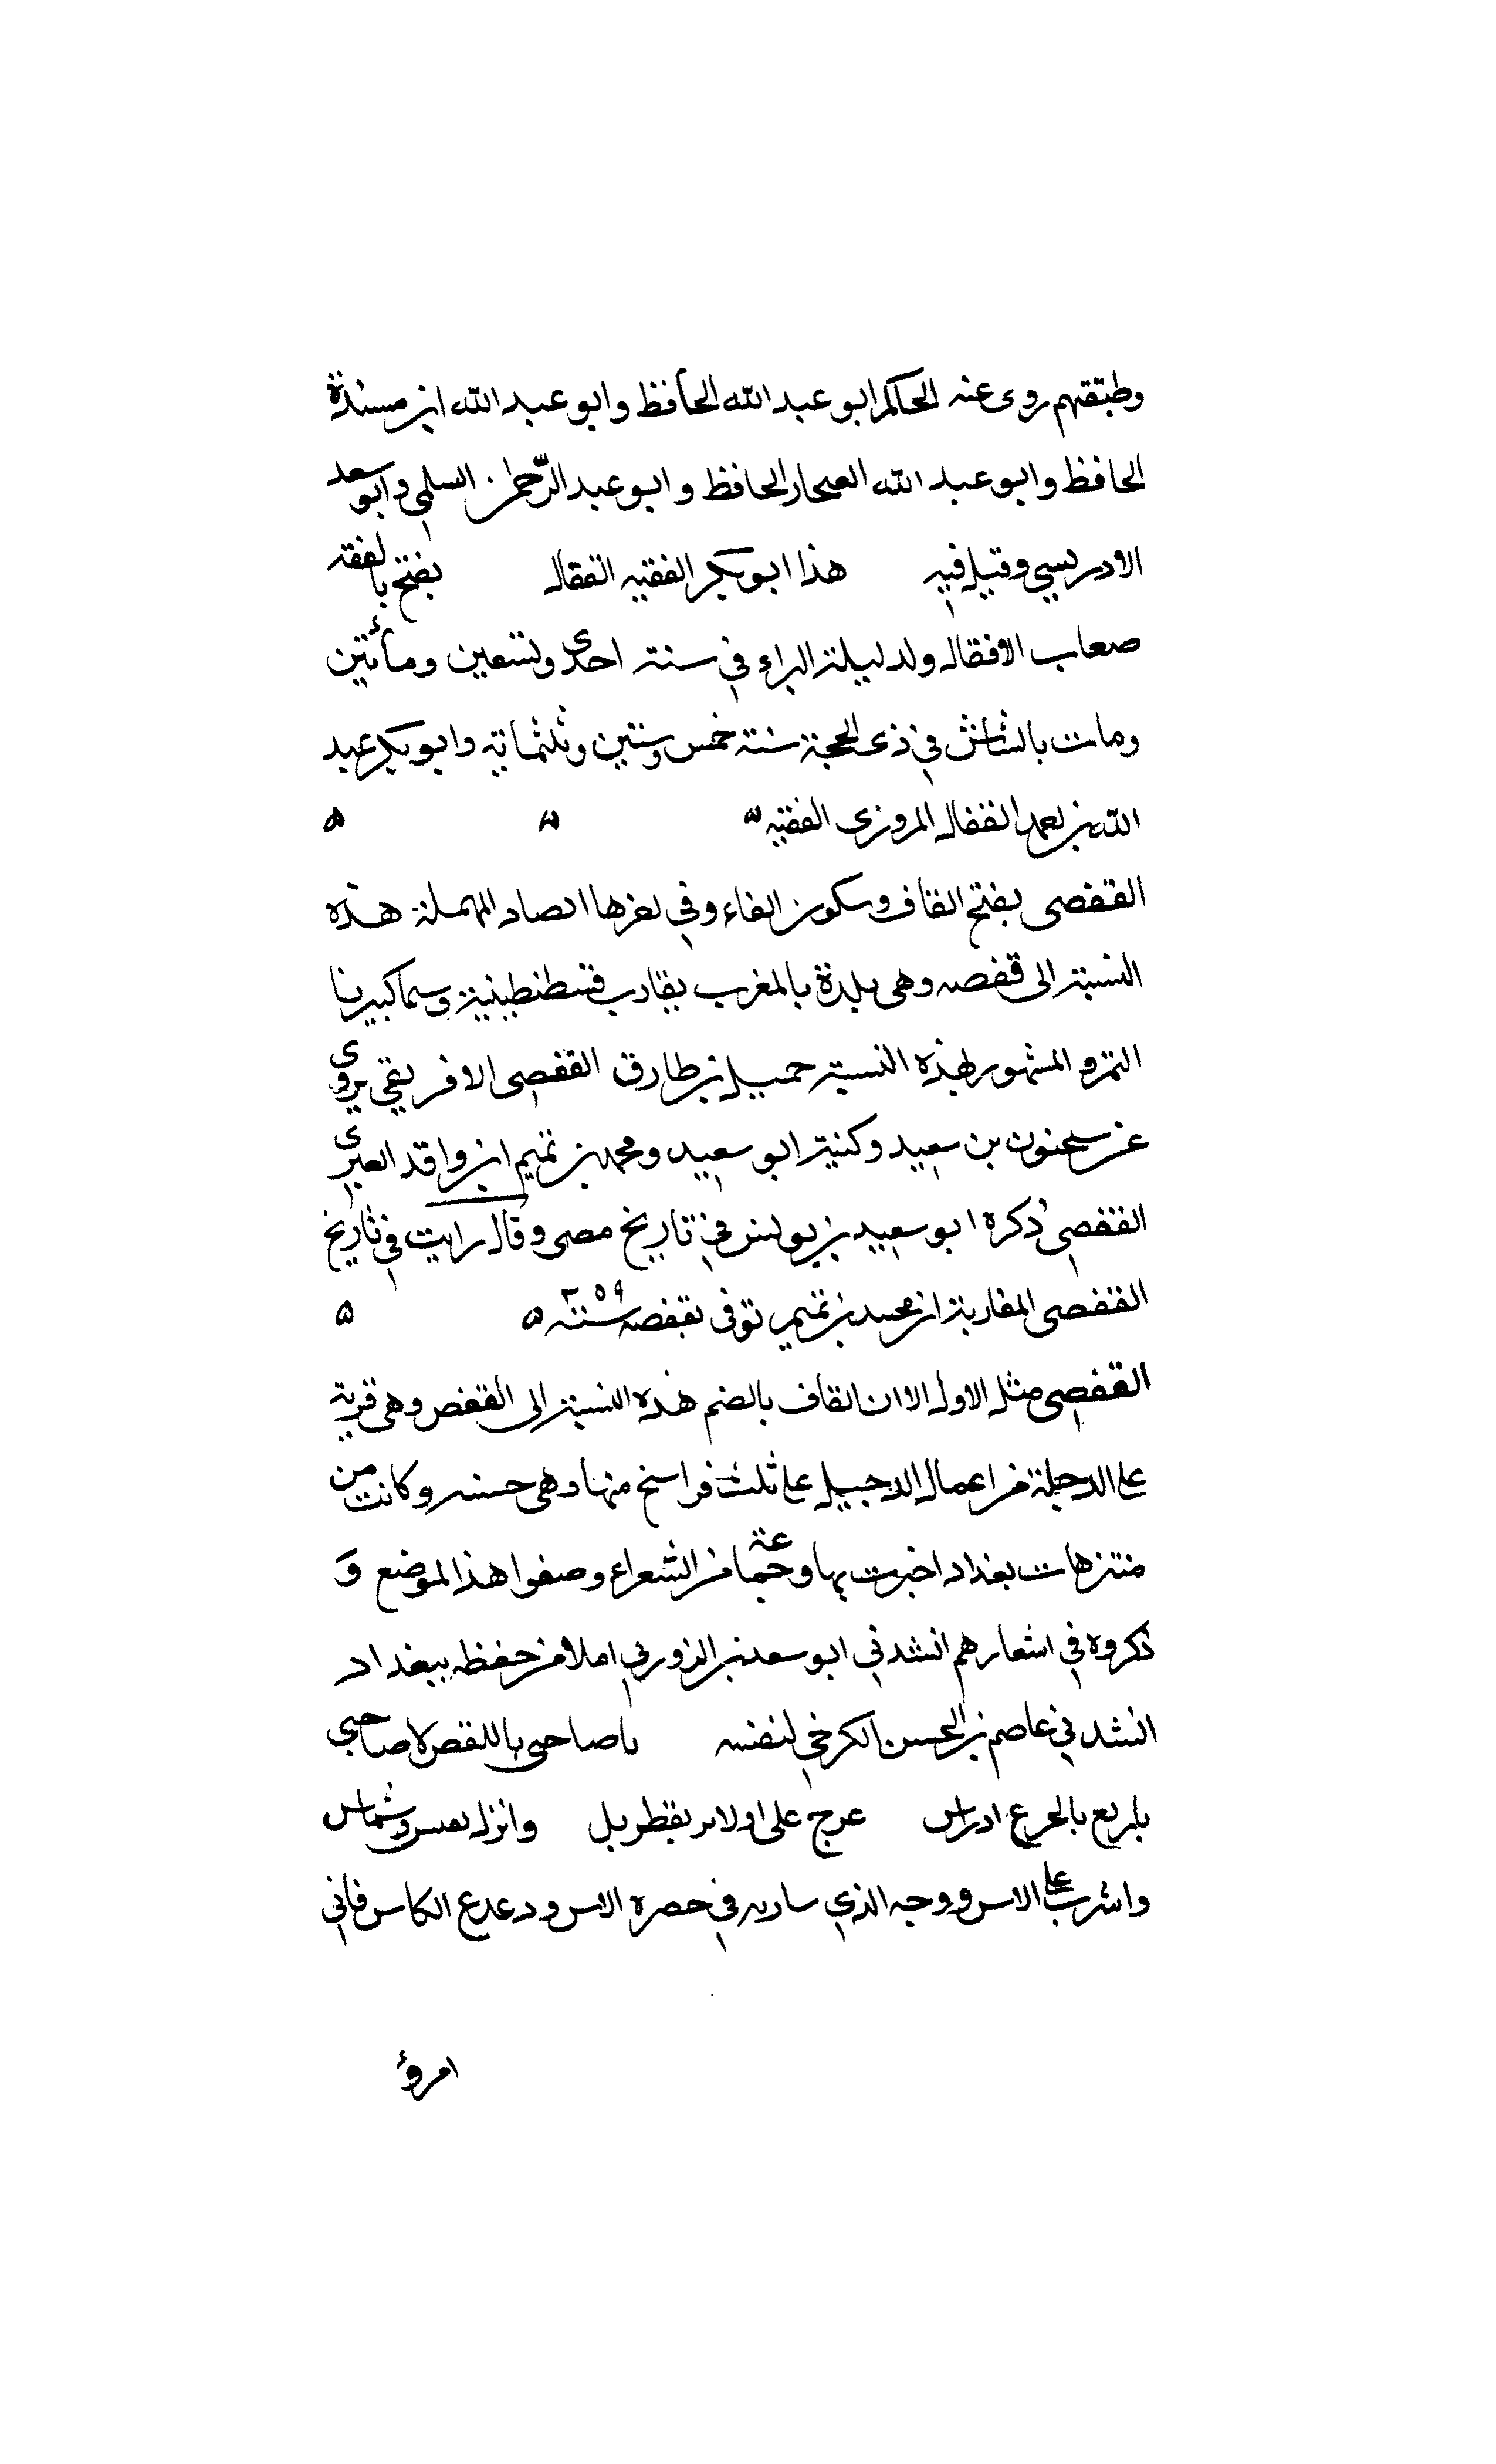 وطبقتهم روى عنه الحاكم ابو عبد الله الحافظ وابو عبد الله ابن مسندة
الحافظ وابو عبد الله الصحار الحافظ وابو عبد الرّحمن السلمي وابو سعد
الادريسي وقيل فيه هذا ابو بكر الفقيه القفال يفتح بالفقه
صعاب الاقفال ولد ليلة البراء في سنة احدى وتسعين ومأتين
ومات بالشاش في ذى الحجة سنة خمس وستين وثلثماية وابو بكر عبد
الله بن احمد القفال المروزى الفقيه ه ه ه
القفصى بفتح القاف وسكون الفاء وفي اخرها الصاد المهملة هذه
النسبة الى قفصه وهى بلدة بالمغرب بقارب قسطنطينية
التمرو المشهور بهذه النسبة حميل بن طارق القفصى الافريقي يروى
عن سحنون بن سعيد وكنية ابو سعيد ومحمد بن تميم ابن واقد العبرى
القفصى ذكره ابو سعيد بن يونس في تاريخ مصر وقال رايت في تاريخ
القفصى المغاربة ان محمد بن تميم توفى بقفصه سنة ٢٥٩ ه ه
القفصى مثل الاول الا ان القاف بالضم هذه النسبة الى القفص وهى قرية
على الدجلة من اعمال الدجيل على ثلث فراسخ منها وهى حسنه وكانت من
منتزهات بغداد اخبرت بها وجماعة من الشعراء وصفوا هذا الموضع و
ذكروه في اشعارهم انشدني ابو سعد بن الزوزني املا من حفظه ببغداد
انشدني عاصم بن الحسن الكرخي لنفسه ياصاحى بالقفص لا صاحبي
يا ربع بالجرع ادراس عرج على اولاد بقطربل وانزل وشماس
واشرب على الاس ووجه الذي في حصره الاس ودعدع الكاس فاني
امرؤ